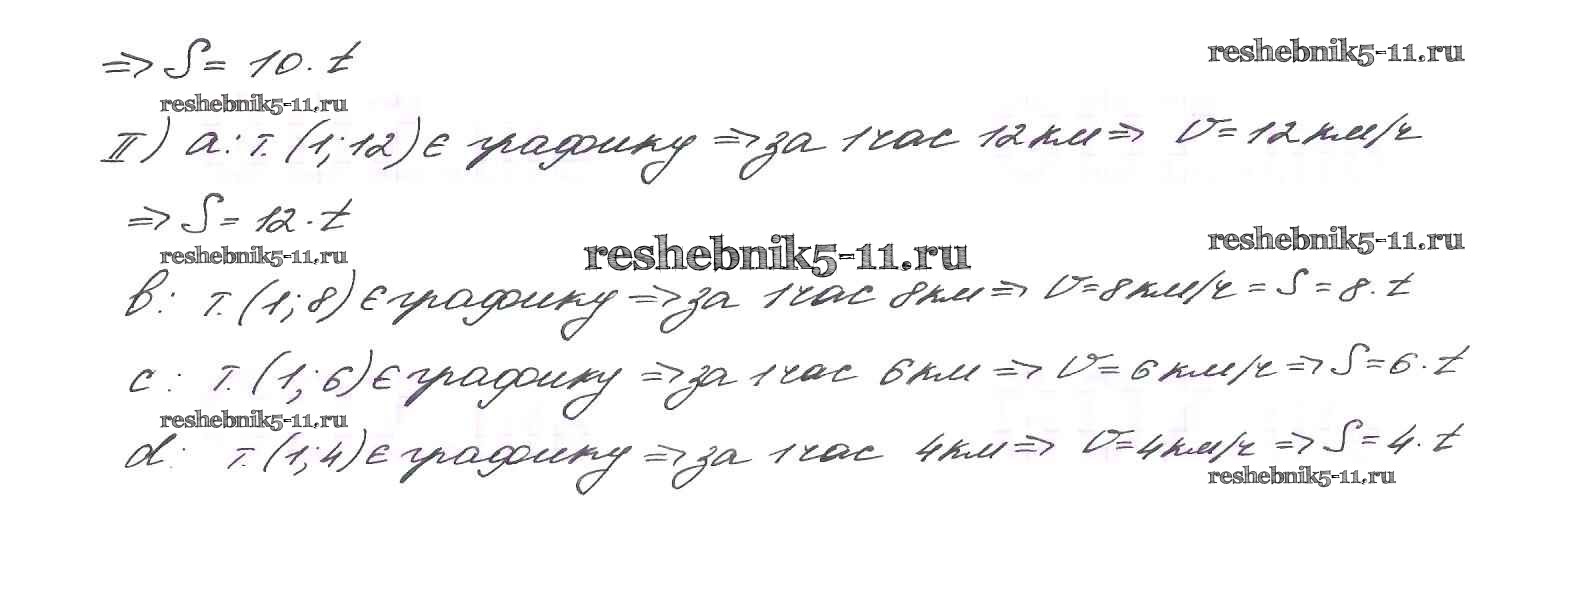 => S = 10 · t
reshebnik5-11.ru
reshebnik5-11.ru
II) a: т. (1; 12) ∈ графику => за 1 час 12 км => V = 12 км/ч
=> S = 12 · t
reshebnik5-11.ru
reshebnik5-11.ru
reshebnik5-11.ru
b: т. (1; 8) ∈ графику => за 1 час 8 км => V = 8 км/ч = S = 8 · t
c: т. (1; 6) ∈ графику => за 1 час 6 км => V = 6 км/ч => S = 6 · t
reshebnik5-11.ru
d: т. (1; 4) ∈ графику => за 1 час 4 км => V = 4 км/ч => S = 4 · t
reshebnik5-11.ru